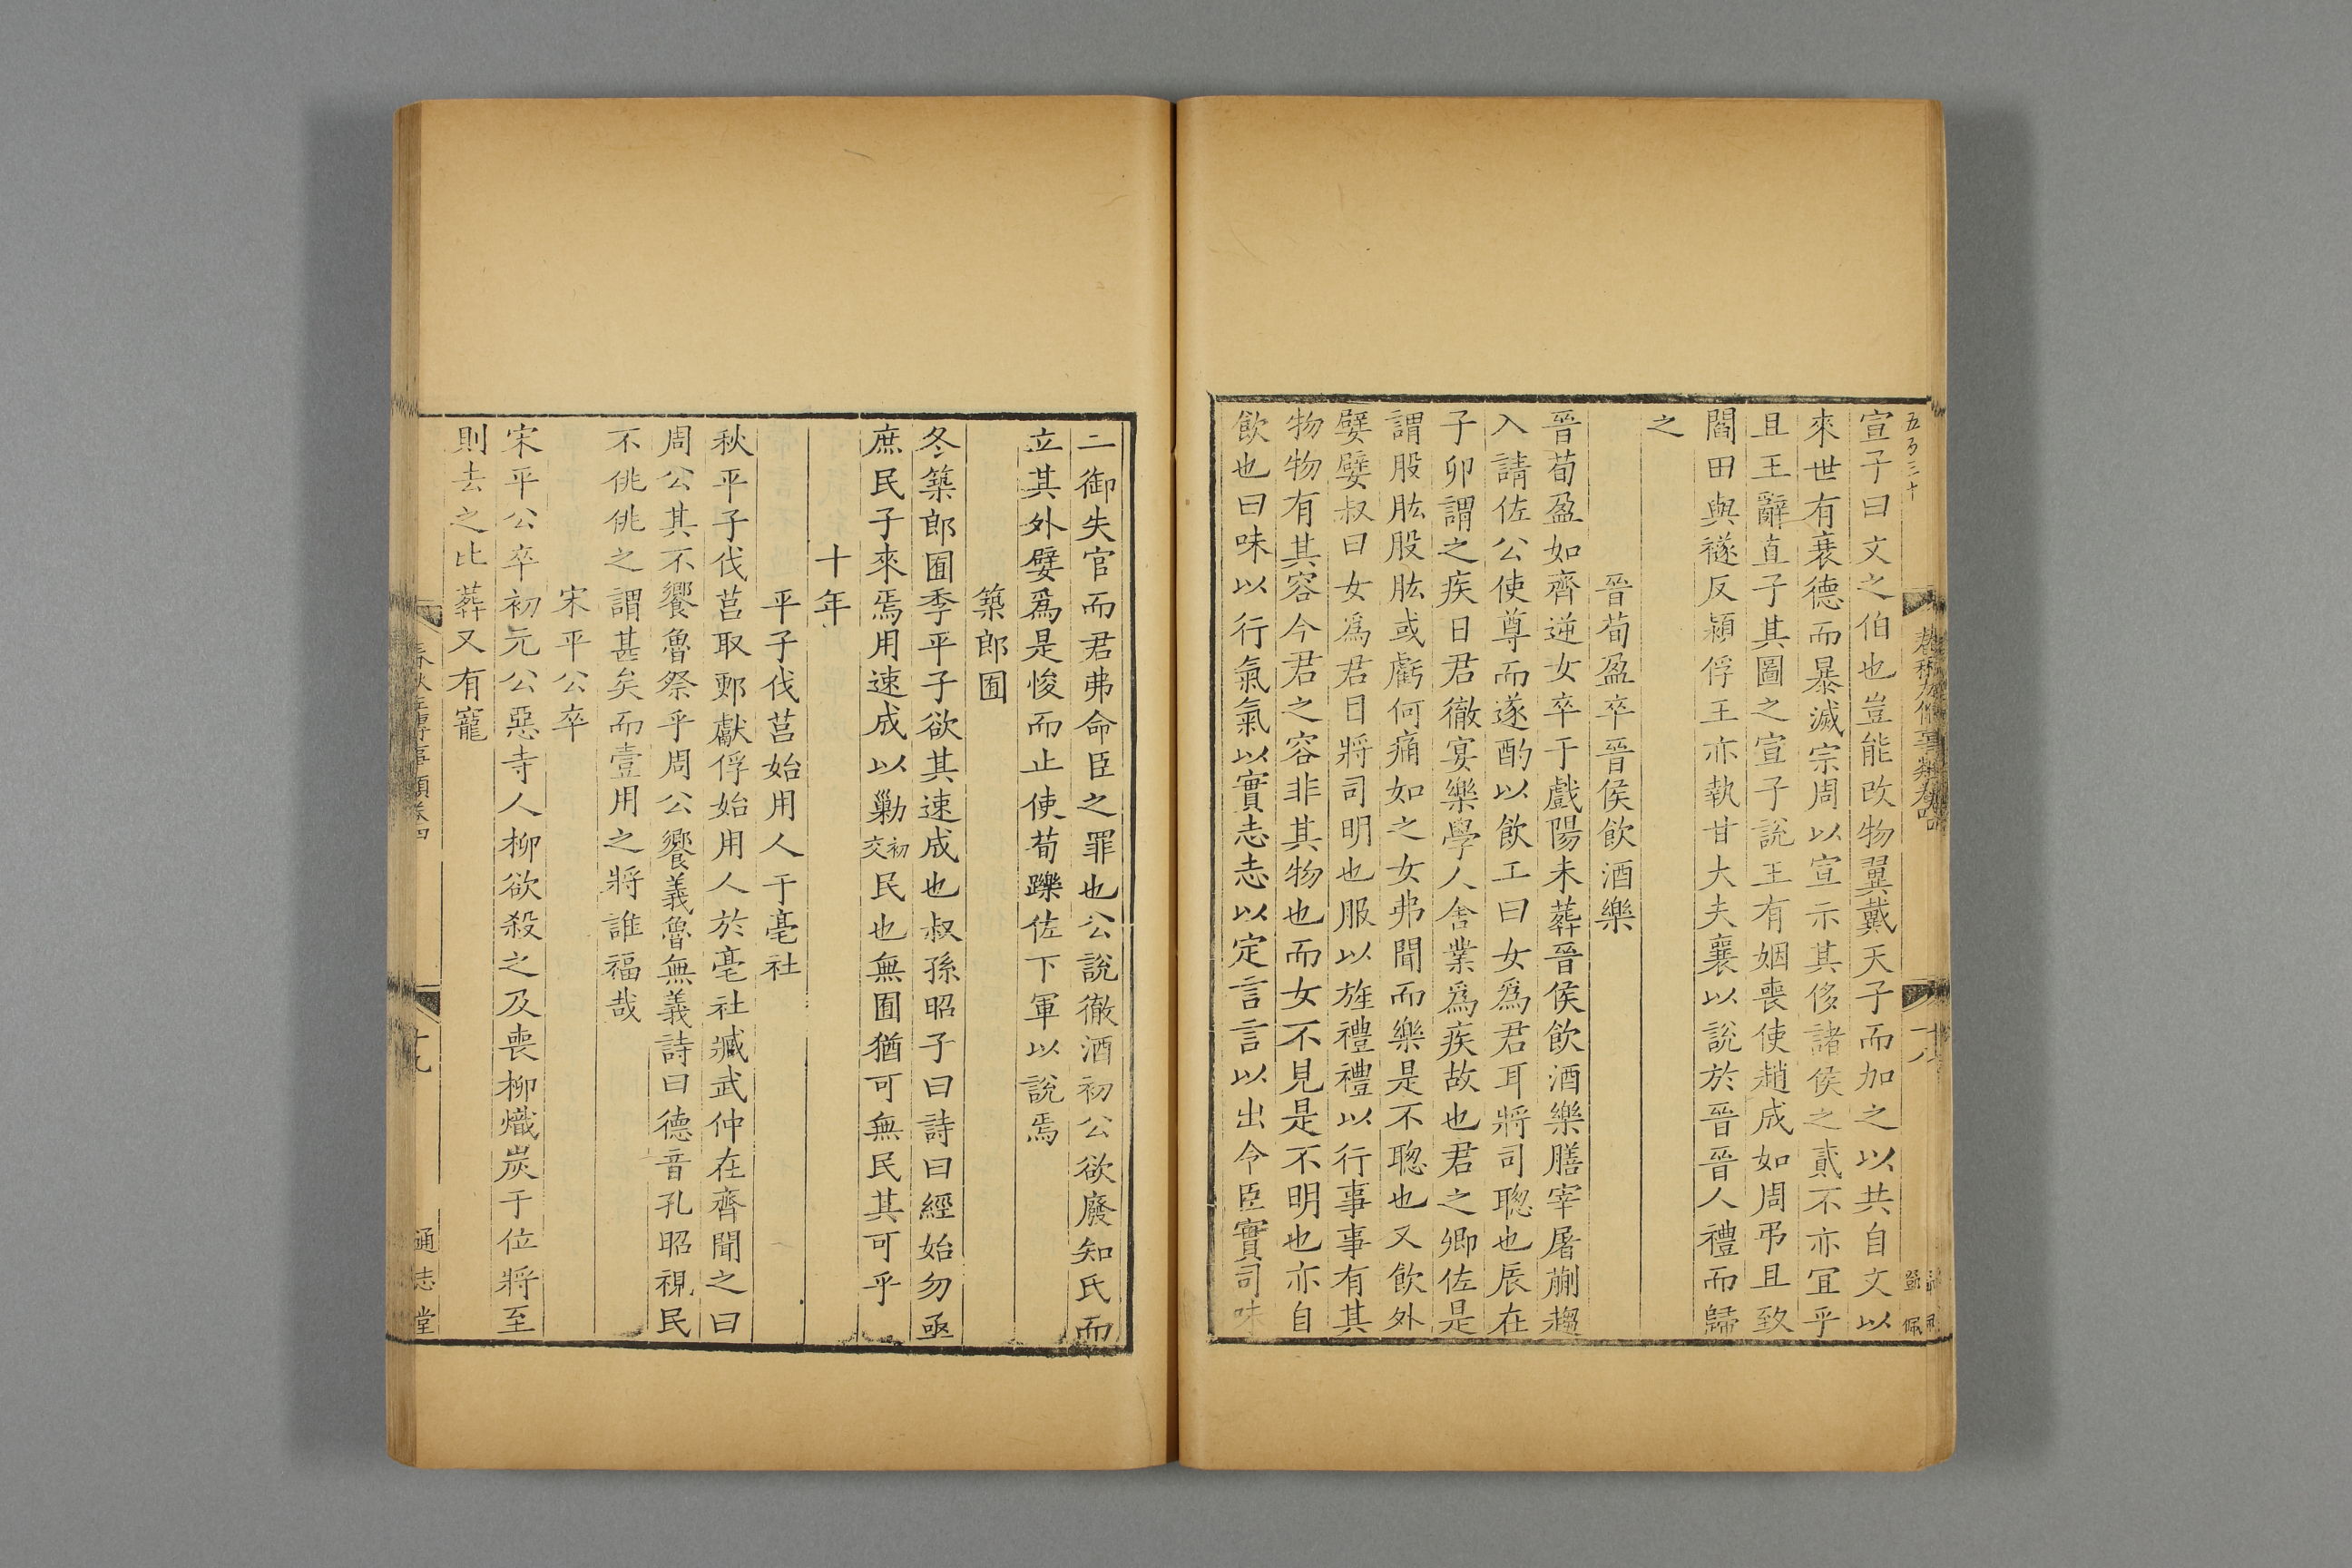 五百三十
宣子曰文之伯也豈能改物翼戴天子而加之以共自文以
來世有衰德而暴滅宗周以宣示其侈諸侯之貳不亦宜乎
且王辭直子其圖之宣子說王有姻喪使趙成如周弔且致
閻田與襚反潁俘王亦執甘大夫襄以說於晉晉人禮而歸
之
晉荀盈卒晉侯飲酒樂
晉荀盈如齊逆女卒于戲陽未葬晉侯飲酒樂膳宰屠蒯趨
入請佐公使尊而遂酌以飲工曰女爲君耳將司聰也辰在
子卯謂之疾日君徹宴樂學人舍業爲疾故也君之卿佐是
謂股肱股肱或虧何痛如之女弗聞而樂是不聰也又飲外
嬖嬖叔曰女爲君目將司明也服以旌禮禮以行事事有其
物物有其容今君之容非其物也而女不見是不明也亦自
飲也曰味以行氣氣以實志志以定言言以出令臣實司味
二御失官而君弗命臣之罪也公說徹酒初公欲廢知氏而
立其外嬖爲是悛而止使荀躒佐下軍以說焉
築郎囿
冬築郎囿季平子欲其速成也叔孫昭子曰詩曰經始勿亟
庶民子來焉用速成以勦初交民也無囿猶可無民其可乎
十年
平子伐莒始用人于亳社
秋平子伐莒取郠獻俘始用人於亳社臧武仲在齊聞之曰
周公其不饗魯祭乎周公饗義魯無義詩曰德音孔昭視民
不佻佻之謂甚矣而壹用之將誰福哉
宋平公卒
宋平公卒初元公惡寺人柳欲殺之及喪柳熾炭于位將至
則去之比葬又有寵
春秋左傳事類卷四
十九
通志堂